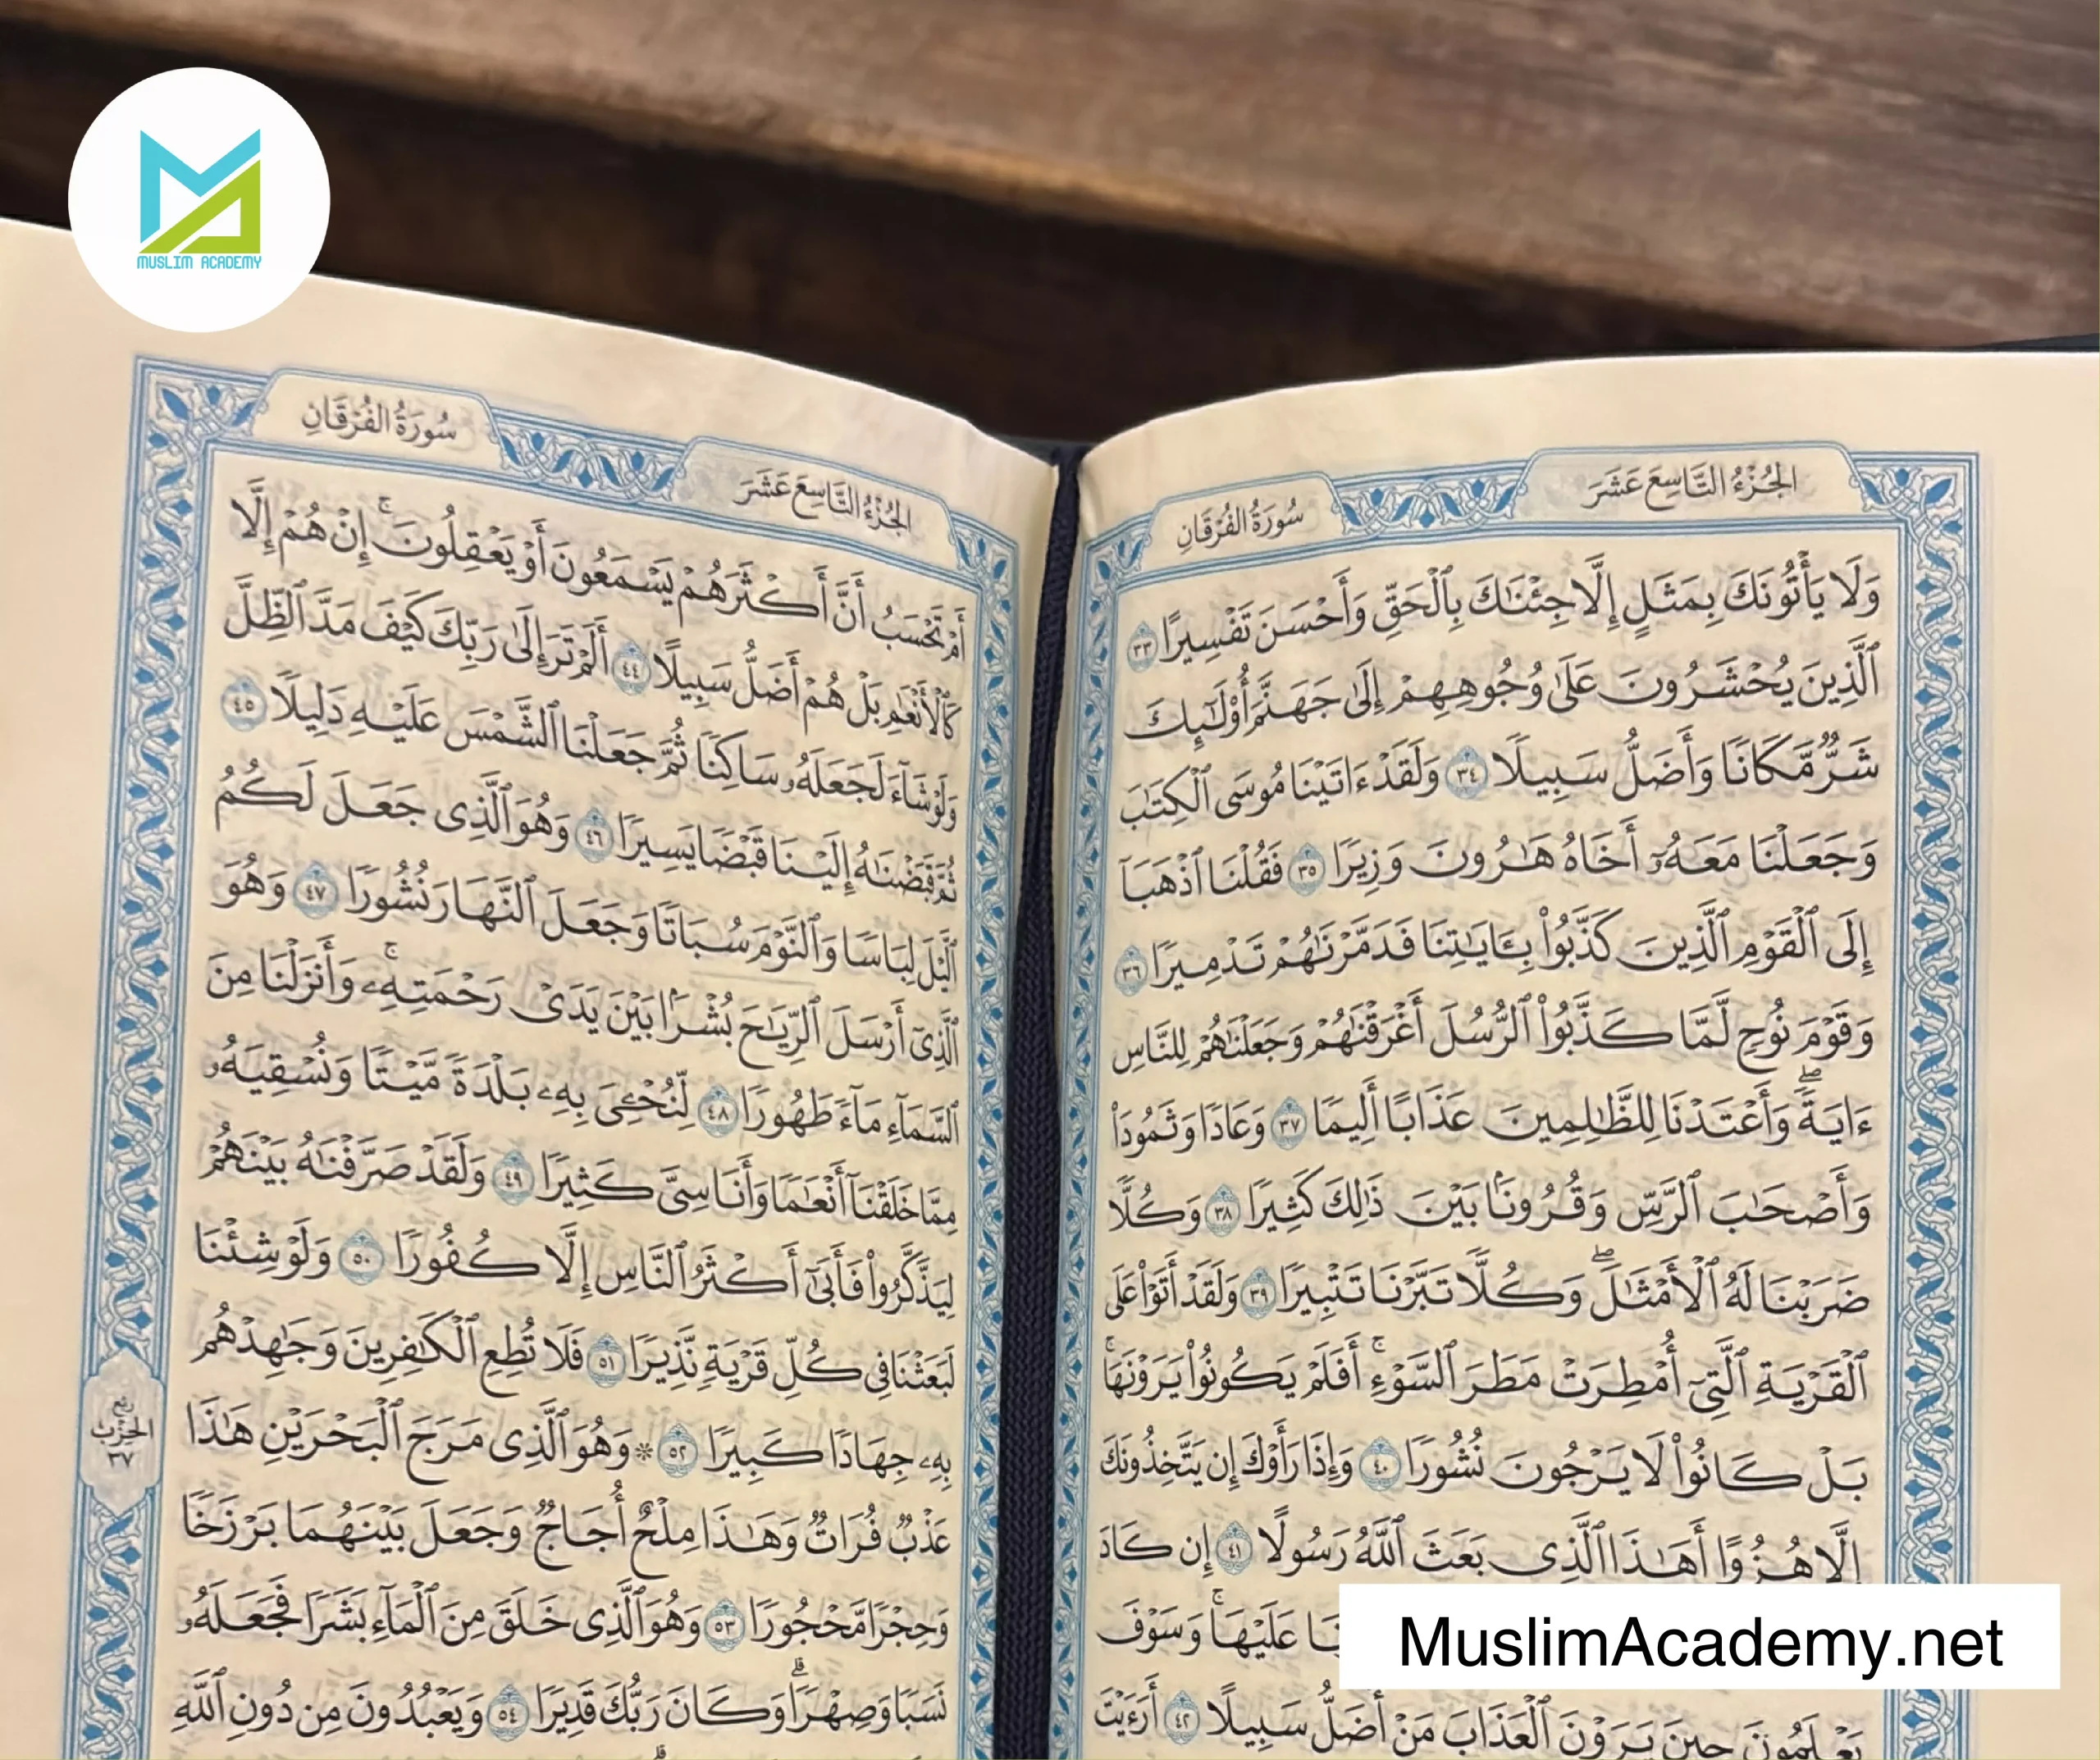 MUSLIM ACADEMY
الجُزْءُ التَّاسِعَ عَشَرَ
سُورَةُ الفُرْقَانِ
وَلَا يَأْتُونَكَ بِمَثَلٍ إِلَّا جِئْنَٰكَ بِٱلْحَقِّ وَأَحْسَنَ تَفْسِيرًا ٣٣
ٱلَّذِينَ يُحْشَرُونَ عَلَىٰ وُجُوهِهِمْ إِلَىٰ جَهَنَّمَ أُو۟لَٰٓئِكَ
شَرٌّ مَّكَانًا وَأَضَلُّ سَبِيلًا ٣٤ وَلَقَدْ ءَاتَيْنَا مُوسَى ٱلْكِتَٰبَ
وَجَعَلْنَا مَعَهُۥٓ أَخَاهُ هَٰرُونَ وَزِيرًا ٣٥ فَقُلْنَا ٱذْهَبَآ
إِلَى ٱلْقَوْمِ ٱلَّذِينَ كَذَّبُوا۟ بِـَٔايَٰتِنَا فَدَمَّرْنَٰهُمْ تَدْمِيرًا ٣٦
وَقَوْمَ نُوحٍ لَّمَّا كَذَّبُوا۟ ٱلرُّسُلَ أَغْرَقْنَٰهُمْ وَجَعَلْنَٰهُمْ لِلنَّاسِ
ءَايَةً ۖ وَأَعْتَدْنَا لِلظَّٰلِمِينَ عَذَابًا أَلِيمًا ٣٧ وَعَادًا وَثَمُودَا۟
وَأَصْحَٰبَ ٱلرَّسِّ وَقُرُونًۢا بَيْنَ ذَٰلِكَ كَثِيرًا ٣٨ وَكُلًّا
ضَرَبْنَا لَهُ ٱلْأَمْثَٰلَ ۖ وَكُلًّا تَبَّرْنَا تَتْبِيرًا ٣٩ وَلَقَدْ أَتَوْا۟ عَلَى
ٱلْقَرْيَةِ ٱلَّتِىٓ أُمْطِرَتْ مَطَرَ ٱلسَّوْءِ ۚ أَفَلَمْ يَكُونُوا۟ يَرَوْنَهَا ۚ
بَلْ كَانُوا۟ لَا يَرْجُونَ نُشُورًا ٤٠ وَإِذَا رَأَوْكَ إِن يَتَّخِذُونَكَ
إِلَّا هُزُوًا أَهَٰذَا ٱلَّذِى بَعَثَ ٱللَّهُ رَسُولًا ٤١ إِن كَادَ
عَلَيْهَا ۚ وَسَوْفَ
يَعْلَمُونَ حِينَ يَرَوْنَ ٱلْعَذَابَ مَنْ أَضَلُّ سَبِيلًا ٤٢ أَرَءَيْتَ
الجُزْءُ التَّاسِعَ عَشَرَ
سُورَةُ الفُرْقَانِ
أَمْ تَحْسَبُ أَنَّ أَكْثَرَهُمْ يَسْمَعُونَ أَوْ يَعْقِلُونَ ۚ إِنْ هُمْ إِلَّا
كَٱلْأَنْعَٰمِ بَلْ هُمْ أَضَلُّ سَبِيلًا ٤٤ أَلَمْ تَرَ إِلَىٰ رَبِّكَ كَيْفَ مَدَّ ٱلظِّلَّ
وَلَوْ شَآءَ لَجَعَلَهُۥ سَاكِنًا ثُمَّ جَعَلْنَا ٱلشَّمْسَ عَلَيْهِ دَلِيلًا ٤٥
ثُمَّ قَبَضْنَٰهُ إِلَيْنَا قَبْضًا يَسِيرًا ٤٦ وَهُوَ ٱلَّذِى جَعَلَ لَكُمُ
ٱلَّيْلَ لِبَاسًا وَٱلنَّوْمَ سُبَاتًا وَجَعَلَ ٱلنَّهَارَ نُشُورًا ٤٧ وَهُوَ
ٱلَّذِىٓ أَرْسَلَ ٱلرِّيَٰحَ بُشْرًۢا بَيْنَ يَدَىْ رَحْمَتِهِۦ ۚ وَأَنزَلْنَا مِنَ
ٱلسَّمَآءِ مَآءً طَهُورًا ٤٨ لِّنُحْـِۧىَ بِهِۦ بَلْدَةً مَّيْتًا وَنُسْقِيَهُۥ
مِمَّا خَلَقْنَآ أَنْعَٰمًا وَأَنَاسِىَّ كَثِيرًا ٤٩ وَلَقَدْ صَرَّفْنَٰهُ بَيْنَهُمْ
لِيَذَّكَّرُوا۟ فَأَبَىٰٓ أَكْثَرُ ٱلنَّاسِ إِلَّا كُفُورًا ٥٠ وَلَوْ شِئْنَا
لَبَعَثْنَا فِى كُلِّ قَرْيَةٍ نَّذِيرًا ٥١ فَلَا تُطِعِ ٱلْكَٰفِرِينَ وَجَٰهِدْهُم
بِهِۦ جِهَادًا كَبِيرًا ٥٢ ۞ وَهُوَ ٱلَّذِى مَرَجَ ٱلْبَحْرَيْنِ هَٰذَا
عَذْبٌ فُرَاتٌ وَهَٰذَا مِلْحٌ أُجَاجٌ وَجَعَلَ بَيْنَهُمَا بَرْزَخًا
وَحِجْرًا مَّحْجُورًا ٥٣ وَهُوَ ٱلَّذِى خَلَقَ مِنَ ٱلْمَآءِ بَشَرًا فَجَعَلَهُۥ
نَسَبًا وَصِهْرًا ۗ وَكَانَ رَبُّكَ قَدِيرًا ٥٤ وَيَعْبُدُونَ مِن دُونِ ٱللَّهِ
ربع
الحزب
٣٧
MuslimAcademy.net